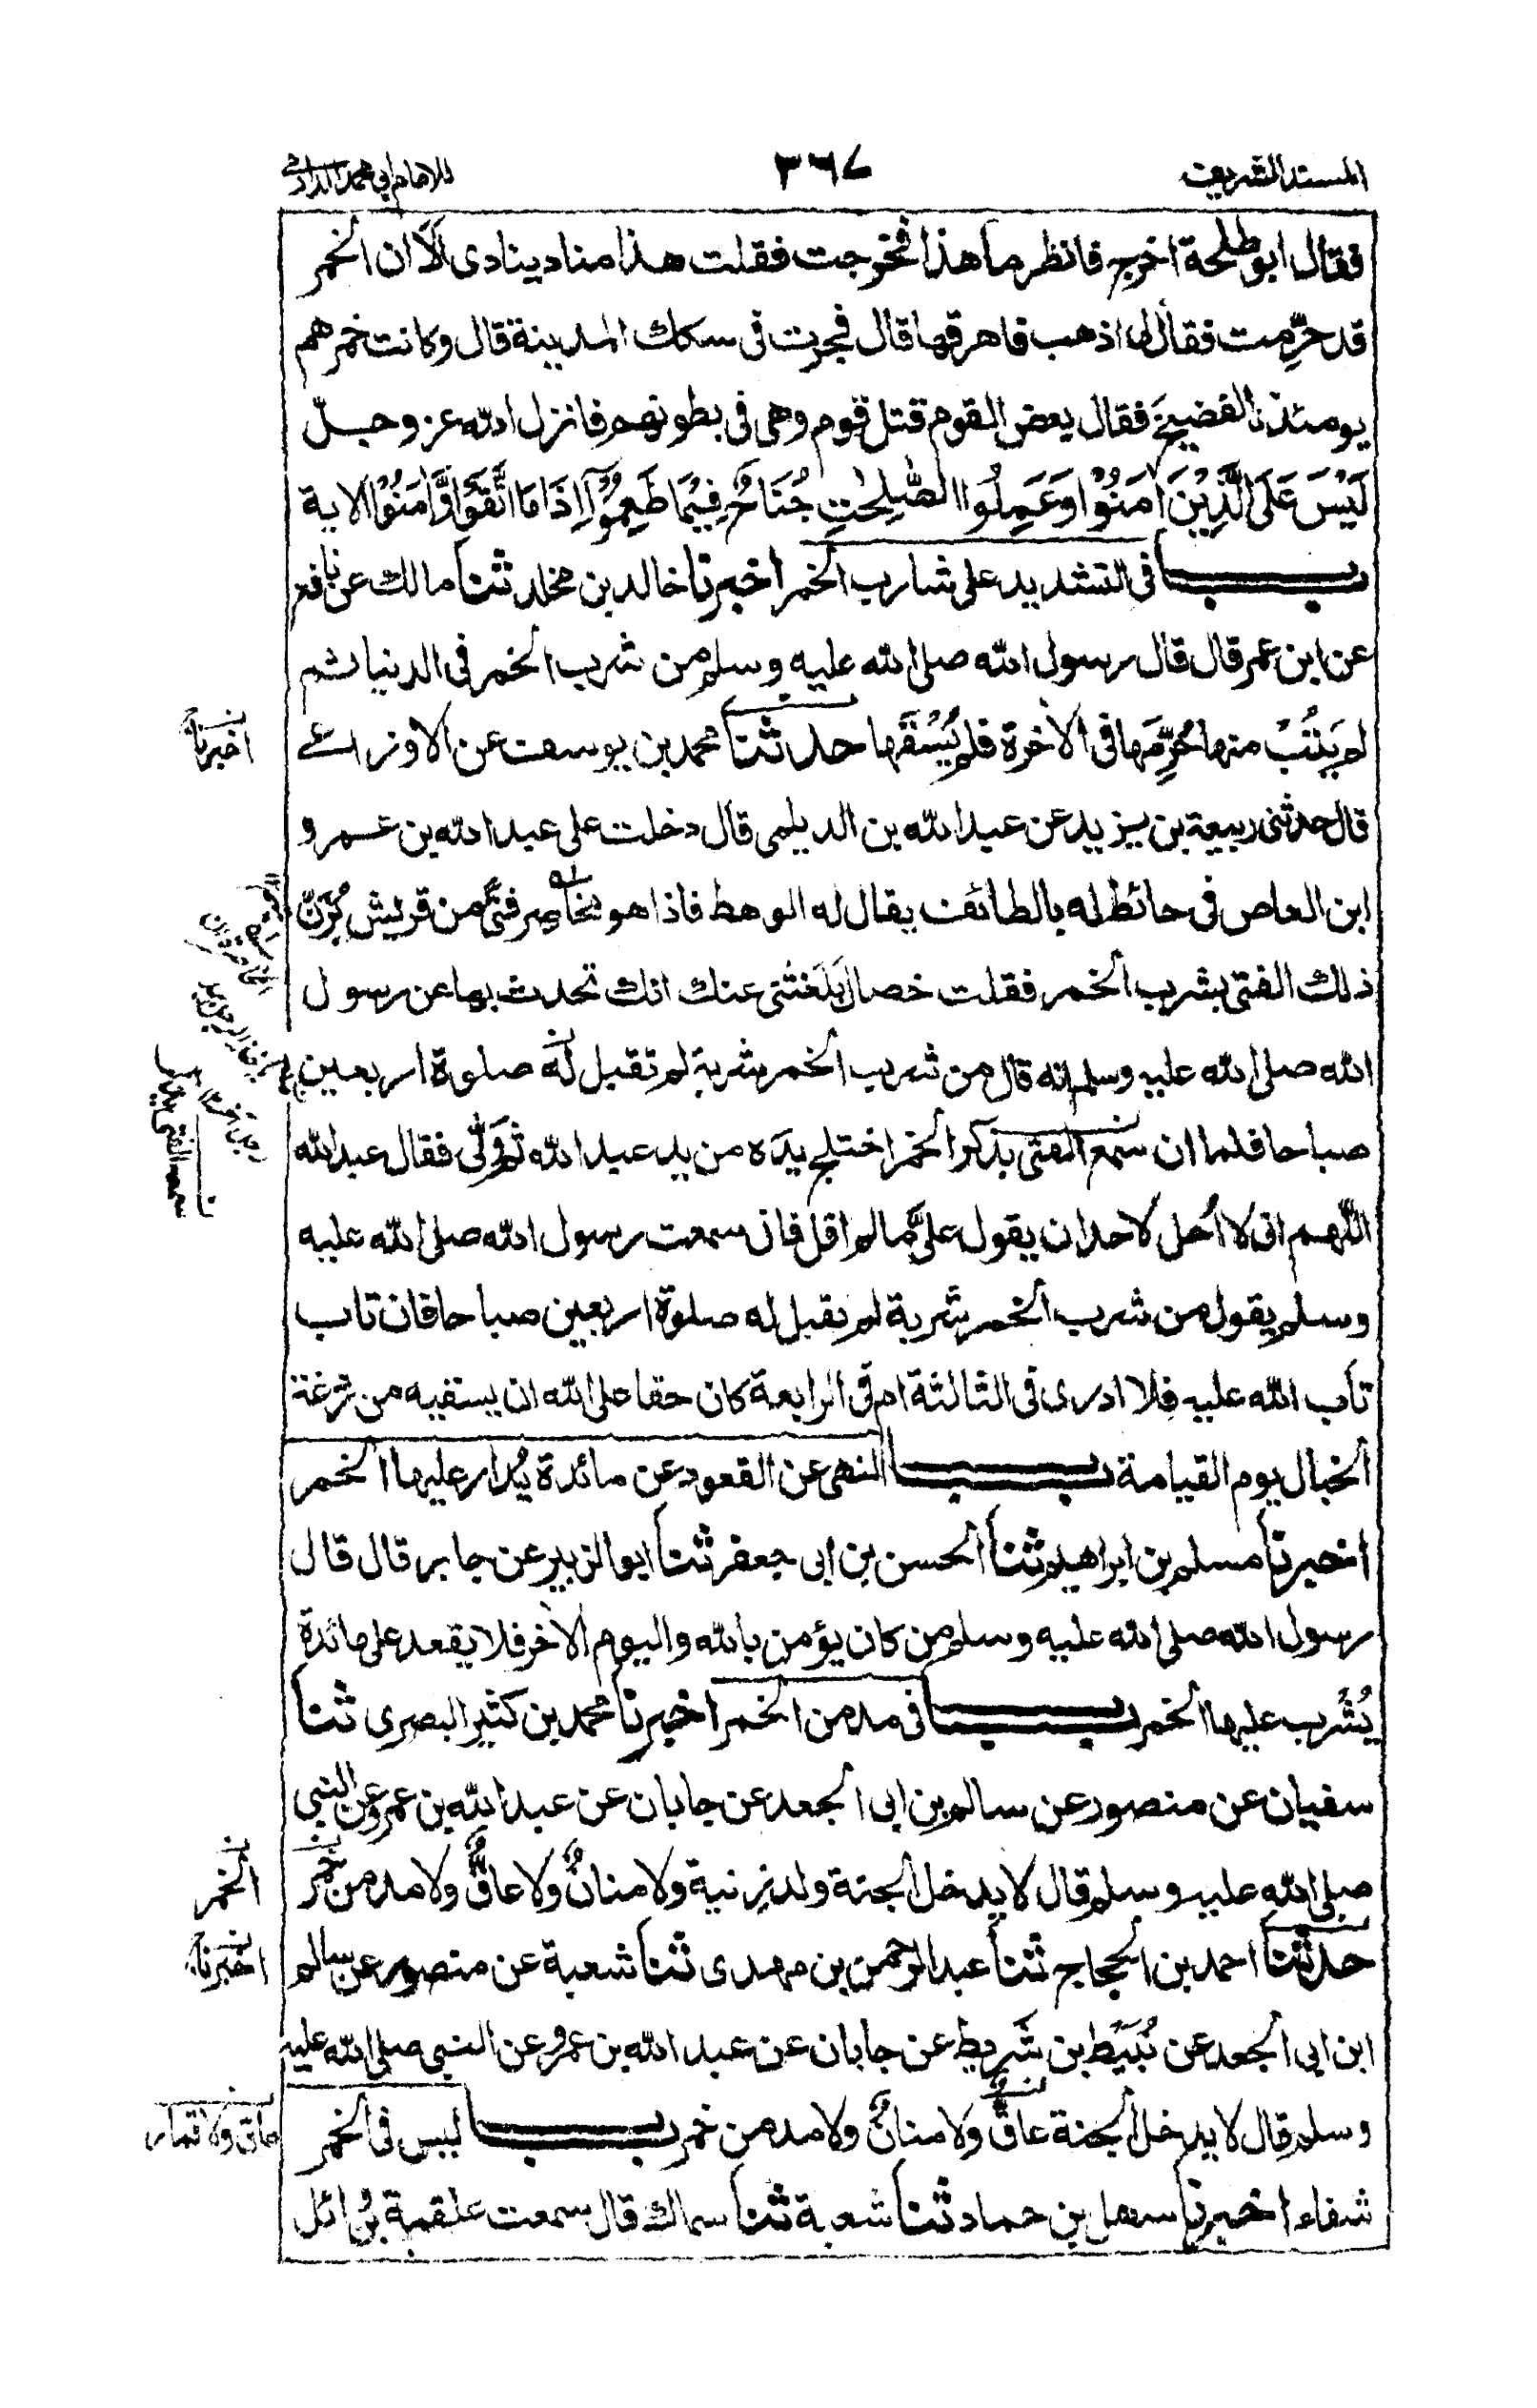 المسند الشريف ٣٦٧ للامام ابي محمد الدارمي
فقال ابو طلحة اخرج فانظر ما هذا فخرجت فقلت هذا مناد ينادى الا ان الخمر
قد حرّمت فقال لى اذهب فاهرقها قال فجرت فى سكك المدينة قال وكانت خمرهم
يومئذ الفضيخ فقال بعض القوم قتل قوم وهى فى بطونهم فانزل الله عز وجلّ
لَيْسَ عَلَى الَّذِيْنَ اٰمَنُوْا وَعَمِلُوا الصّٰلِحٰتِ جُنَاحٌ فِيْمَا طَعِمُوْٓا اِذَا مَا اتَّقَوْا وَّاٰمَنُوْا الاية
باب فى التشديد على شارب الخمر اخبرنا خالد بن مخلد ثنا مالك عن نافع
عن ابن عمر قال قال رسول الله صلى الله عليه وسلم من شرب الخمر فى الدنيا ثم
لم يَتُبْ منها حُرِّمَها فى الاخرة فلم يُسْقَها حدثنا محمد بن يوسف عن الاوزاعے
اخبرنا
قال حدثنى ربيعة بن يزيد عن عبد الله بن الديلمى قال دخلت على عبد الله بن عمرو
ابن العاص فى حائط له بالطائف يقال له الوهط فاذا هو مخاصر فتًى من قريش يُزَنّ
ذلك الفتى بشرب الخمر فقلت خصال بَلَغَتْنى عنك انك تحدث بها عن رسول
الله صلى الله عليه وسلم انه قال من شرب الخمر شربة لم تقبل له صلوة اربعين
صباحا فلما ان سمع الفتى بذكر الخمر اختلج يدَه من يد عبد الله ثم ولّى فقال عبد الله
اللّهم انى لا اُحل لاحد ان يقول علىّ مالم اقل فانى سمعت رسول الله صلى الله عليه
وسلم يقول من شرب الخمر شربة لم تقبل له صلوة اربعين صباحا فان تاب
تاب الله عليه فلا ادرى فى الثالثة ام فى الرابعة كان حقا على الله ان يسقيه من ردغة
الخبال يوم القيامة باب النهى عن القعود عن مائدة يُدار عليها الخمر
اخبرنا مسلم بن ابراهيم ثنا الحسن بن ابى جعفر ثنا ابو الزبير عن جابر قال قال
رسول الله صلى الله عليه وسلم من كان يؤمن بالله واليوم الاخر فلا يقعد على مائدة
يُشْرب عليها الخمر باب فى مدمن الخمر اخبرنا محمد بن كثير البصرى ثنا
سفيان عن منصور عن سالم بن ابى الجعد عن جابان عن عبد الله بن عمرو عن النبى
صلى الله عليه وسلم قال لا يدخل الجنة ولد زنية ولا منانٌ ولا عاقٌّ ولا مدمن خمر
الخمر
حدثنا احمد بن الحجاج ثنا عبد الرحمن بن مهدى ثنا شعبة عن منصور عن سالم
اخبرنا
ابن ابى الجعد عن نُبَيْط بن شَريط عن جابان عن عبد الله بن عمرو عن النبى صلى الله عليه
وسلم قال لا يدخل الجنة عاقٌّ ولا منانٌ ولا مدمن خمر باب ليس فى الخمر
عاق ولا قمار
شفاء اخبرنا سهل بن حماد ثنا شعبة ثنا سماك قال سمعت علقمة بن وائل